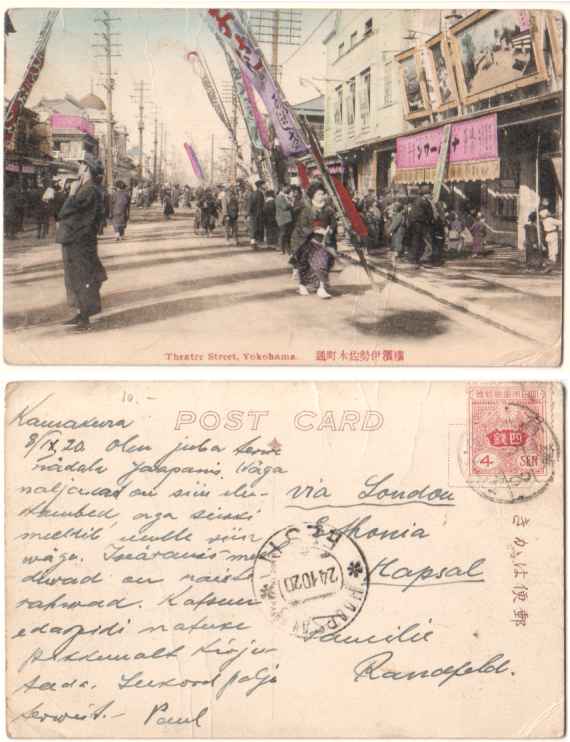 Theatre Street, Yokohama. 橫濱伊勢佐木町通
10.-
POST CARD
Kamakura
8/IX 20. Olen juba terve
nädala Jaapanis. Wäga
naljakad on siin elu
kombed aga siiski
meeldib mulle siin
wäga. Iseäranis me
dewad on nais
rahwad. Katsun
edaspidi natuke
pikkemalt kirju
tada. Seekord palju
terwist.- Paul
4 SEN
四銭
via London
Esthonia
Hapsal
Familie
Randfeld.
きがは便郵
EESTI
24 10 20
HAAPSALU